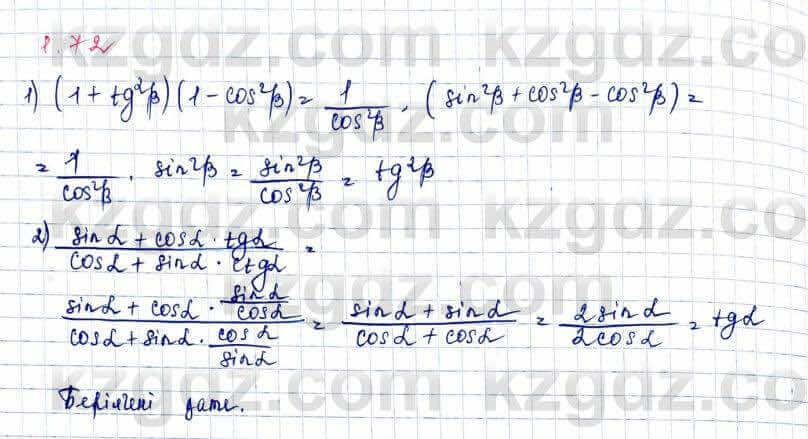 1.72
1) (1 + tg²β)(1 - cos²β) = 1/cos²β · (sin²β + cos²β - cos²β) =
= 1/cos²β · sin²β = sin²β/cos²β = tg²β
2) (sinα + cosα · tgα)/(cosα + sinα · ctgα) =
(sinα + cosα · sinα/cosα)/(cosα + sinα · cosα/sinα) = (sinα + sinα)/(cosα + cosα) = 2sinα/2cosα = tgα
Берілгені
kzgdz.com kzgdz.com
kzgdz.com kzgdz.com
kzgdz.com kzgdz.com
kzgdz.com kzgdz.com
kzgdz.com kzgdz.com